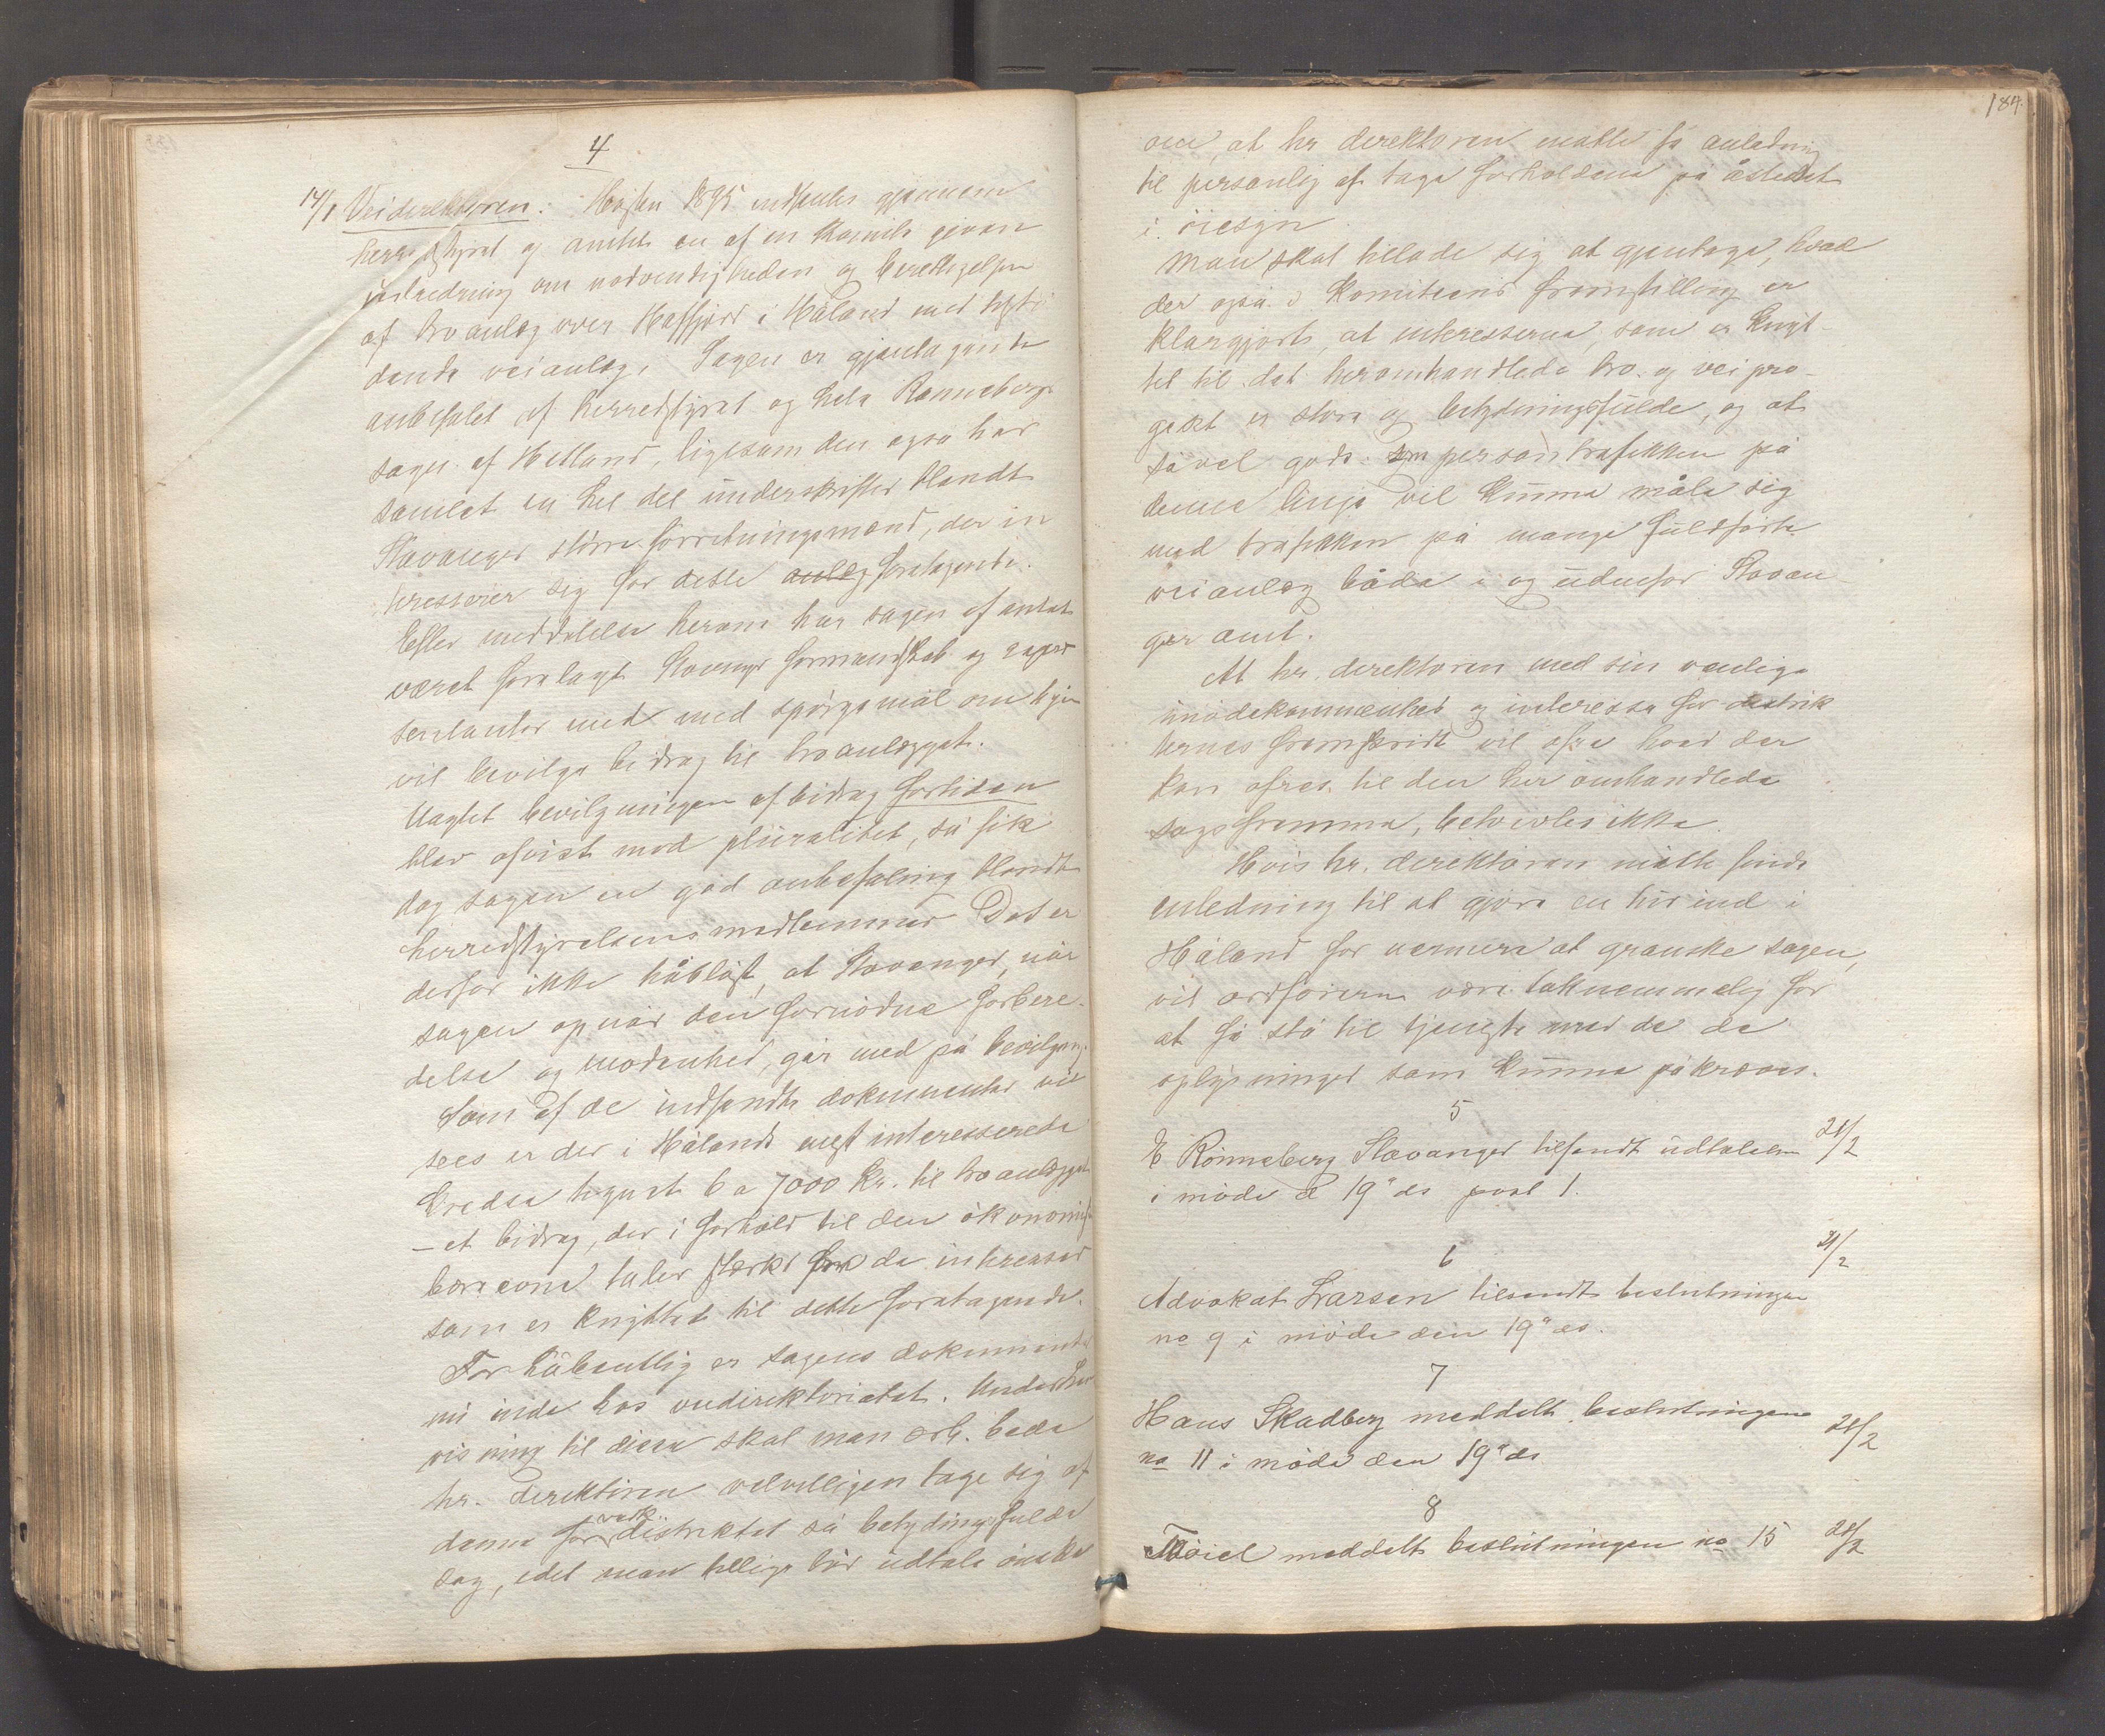 4
14/1 Veidirektøren: Høsten 1895 indsendtes gjennem
herredsstyret og amtet en af en komite given
udredning om nødvendigheden og berettigelsen
af broanlæg over Hafsfjord i Håland med tilstø
dende veianlæg. Sagen er gjentagende
anbefalet af herredsstyret og hele Rønneberge
sogn af Hetland, ligesom den også har
samlet en hel del underskrifter blandt
Stavanger større forretningsmænd, der in
teresserer sig for dette anlæg foretagende.
Efter meddelelse herom har sagen af amtet
været forelagt Stavanger formandskab og repræ
sentanter med med spørgsmål om byen
vil bevilge bidrag til broanlægget.
Uagtet bevilgningen af bidrag fortiden
blev afvist mod pluralitet, så fik
dog sagen en god anbefaling blandt
herredsstyrelsens medlemmer Det er
derfor ikke håbløst, at Stavanger, når
sagen opnår den fornødne forbere-
delse og modenhed, går med på bevilgning.
Som af de indsendte dokumenter vil
sees er der i Hålands mest interesserede
kredse tegnet 6 a 7000 kr. til broanlægget
– et bidrag, der i forhold til den økonomiske
bæreevne taler stærkt for de interesser
som er knyttet til dette foretagende.
Forhåbentlig er sagens dokumenter
nu inde hos veidirektoriatet. Under hen
visning til disse skal man ærb. bede
hr. direktøren velvilligen tage sig af
denne for vort distriktet så betydningsfulde
sag, idet man tillige bør udtale ønske
184.
om, at hr direktøren måtte få anledning
til personlig at tage forholdene på åstedet
i øiesyn.
Man skal tillade sig at gjentage, hvad
der også i komiteens fremstilling er
klargjort, at interesserne, som er knyt-
tet til det heromhandlede bro- og veipro-
gekt er store og betydningsfulde, og at
såvel gods- som persontrafikken på
denne linje vil kunne måle sig
med trafikken på mange fuldførte
veianlæg både i og udenfor Stavan
ger amt.
At hr. direktøren med sin venlige
imødekommenhed og interesse for distrik
ternes fremskridt vil ofre hvad der
kan ofres til den her omhandlede
sags fremme, betvivles ikke.
Hvis hr. direktøren måtte finde
anledning til at gjøre en tur ind i
Håland for nærmere at granske sagen,
vil ordføreren være taknemmelig for
at få stå til tjeneste med de de
oplysninger som kunne påkræves.
5
E Rønneberg Stavanger tilsendt udtalelsen 21/2
i møde d 19" ds post 1.
6
21/2
Advokat Larsen tilsendt beslutningen
no 9 i møde den 19" ds.
7
Hans Skadberg meddelt beslutningen 21/2
no 11 i møde den 19" ds
8
meddelt beslutningen no 15 21/2